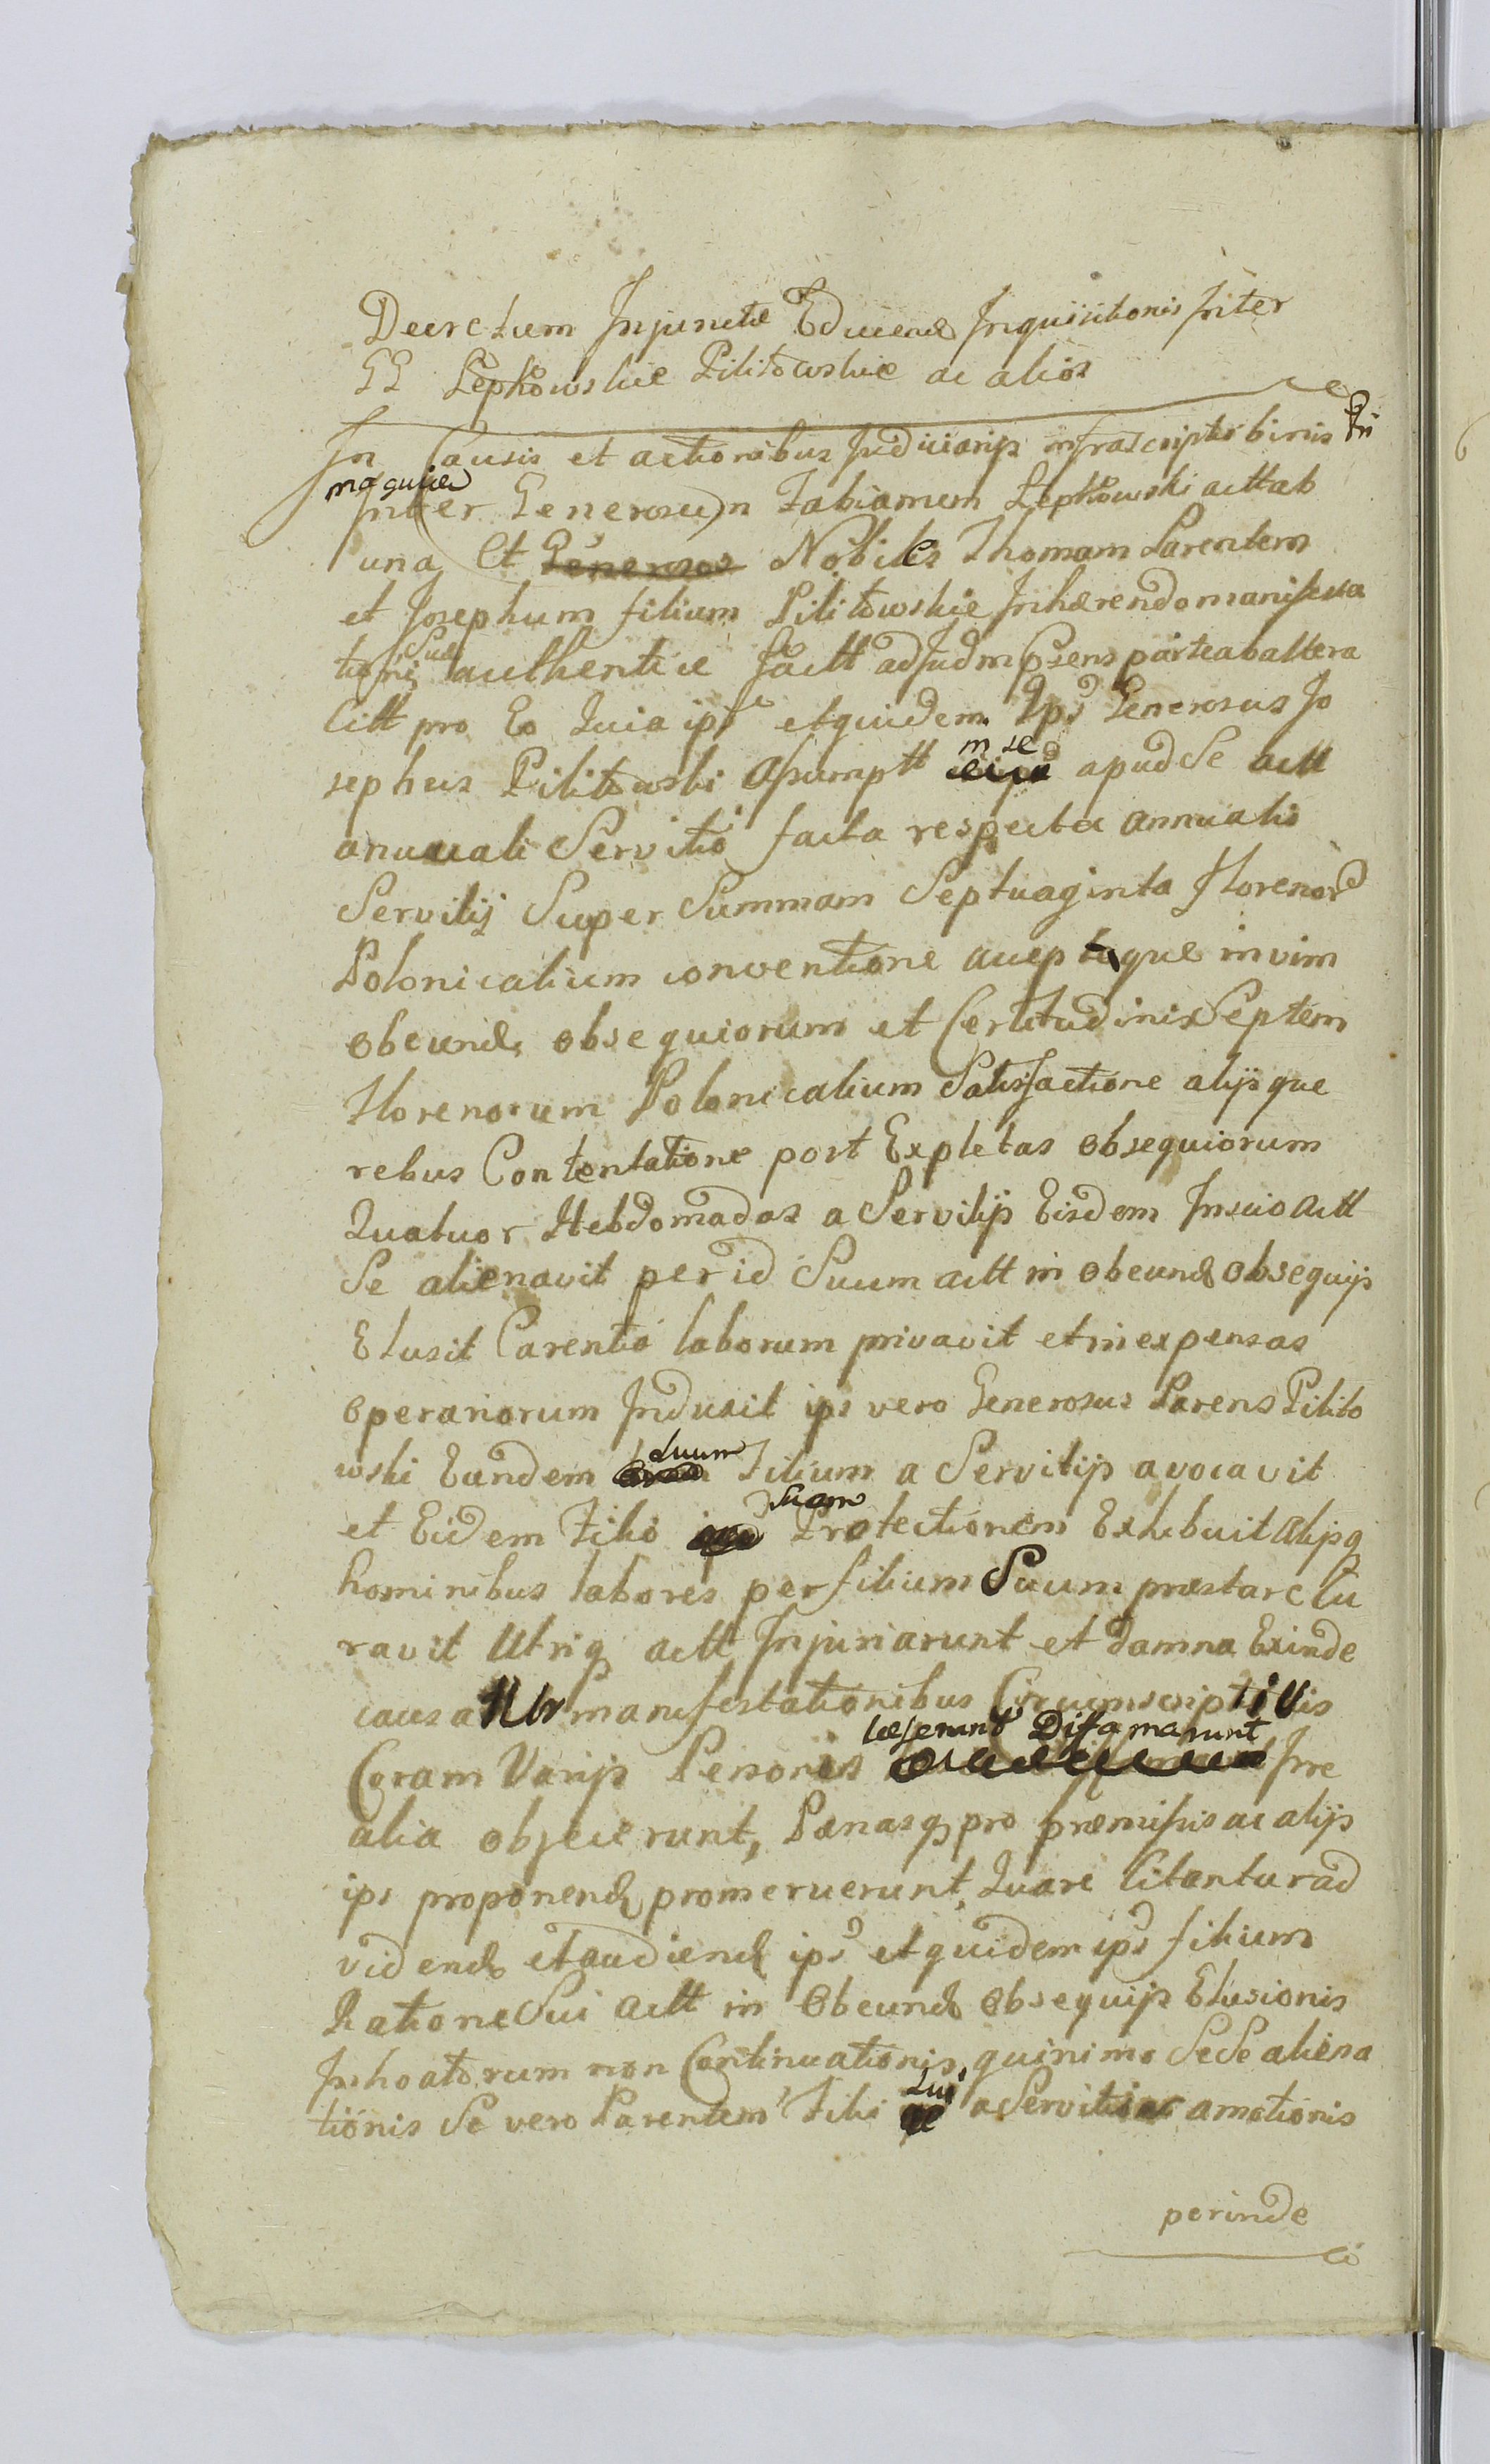 Decretum Injunctæ Educendæ Inquisitionis Inter
GG Lepkowskie Pilitowskie ac alios
In Causis et actionibus Judiciariis infrascriptis binis Pri
ma quidem
Inter Generosum Fabianum Lepkowski actt ab
una Et Generosos Nobiles Thomam Parentem
et Josephum filium Pilitowskie Inhærendo manifesta
tioni Suæ authentice factt ad Judm psens parte ab altera
Citt pro Eo Quia ips et quidem Ips Generosus Jo
sephus Pilitowski Assumptt in se apud Se actt
anuuali Servitio facta respectu annualis
Servitij Super Summam Septuaginta Florenor
Polonicalium conventione acceptaque in vim
obeund obsequiorum et Certitudinis Septem
Florenorum Polonicalium Satisfactione alijsque
rebus Contentatione post Expletas obsequiorum
Quatuor Hebdomadas a Servitijs Eisdem Inscio Actt
Se alienavit per id Suum actt in obeund obsequijs
Elusit Carentia laborum privavit et in expensas
operariorum Induxit ips vero Generosus Parens Pilito
wski Eundem Suum Filium a Servitijs avocavit
et Eidem Filio Suam Protectionem Exhibuit Alijsq
hominibus labores per filium Suum præstare Cu
ravit Utriq actt Injuriarunt et damna Exinde
causarunt manifestationibus Circumscriptivis
læserunt Diffamarunt
Coram Varijs Personis Irre
alia objecerunt, Pænasq pro præmissis ac alijs
ips proponend promeruerunt, Quare Citantur ad
vidend et audiend ips et quidem ips filium
Ratione Sui Actt in Obeund Obsequijs Elusionis
Inchoatorum non Continuationis, quinimo Sese aliena
tionis Se vero Parentem Filii Sui a Servitiis amotionis
perinde